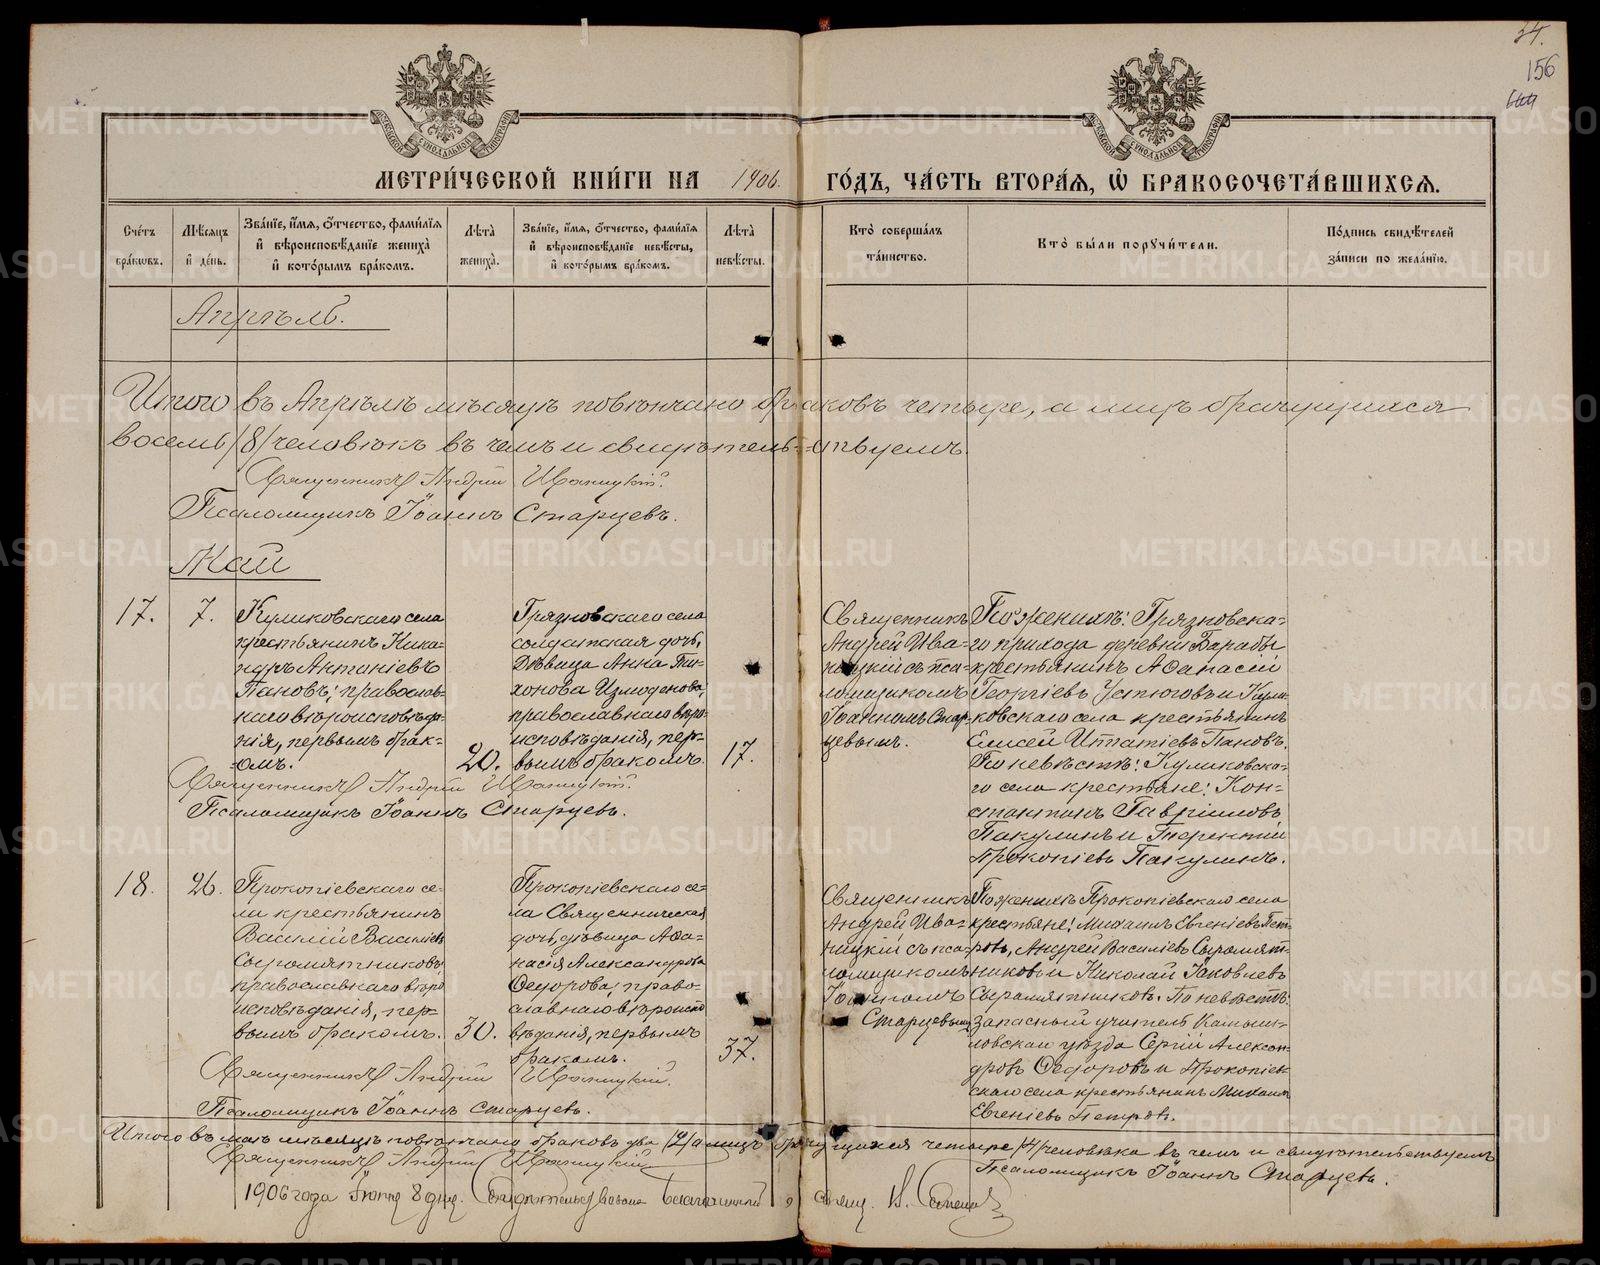 24.
156
МЕТРИ́ЧЕСКОЙ КНИ́ГИ НА 1906. ГО́ДЪ, ЧА́СТЬ ВТОРА́Я, Ѡ҆ БРАКОСОЧЕТА́ВШИХСЯ.
Сче́тъ
бра́кѡвъ.
Мѣ́сяцъ
и҆ де́нь.
Зва́нїе, и҆́мя, ѻ҆́тчество, фами́лїя
и҆ вѣроисповѣ́данїе жениха̀
и҆ кото́рымъ бра́комъ.
Лѣ́та̀
жениха̀.
Зва́нїе, и҆́мя, ѻ҆́тчество, фами́лїя
и҆ вѣроисповѣ́данїе невѣ́сты,
и҆ кото́рымъ бра́комъ.
Лѣ́та̀
невѣ́сты.
Кто̀ соверша́лъ
та́инство.
Кто̀ бы́ли порꙋчи́тели.
По́дпись свидѣ́телей
за́писи по жела́нїю.
Апрѣль.
Итого въ Апрѣлѣ мѣсяцѣ повѣнчано браковъ четыре, а лицъ брачущихся
восемь /8/ человѣкъ въ чемъ и свидѣтель-ствуемъ.
Священникъ Андрей Иваницкій.
Псаломщикъ Іоаннъ Старцевъ.
Май
17.
7.
Куликовскаго села
крестьянинъ Ника-
ндръ Антоніевъ
Пановъ, православ-
наго вѣроисповѣда-
нія, первымъ брак-
омъ.
20.
Грязновскаго села
солдатская дочь,
дѣвица Анна Ти-
хонова Измоденова,
православнаго вѣро-
исповѣданія, пер-
вымъ бракомъ.
17.
Священникъ
Андрей Ива-
ницкій съ пса-
ломщикомъ
Іоанномъ Стар-
цевымъ.
По женихѣ: Грязновска-
го прихода деревни Барабы
крестьянинъ Аѳанасій
Георгіевъ Устюговъ и Кули-
ковскаго села крестьянинъ
Елисей Игнатіевъ Пановъ.
По невѣстѣ: Куликовска-
го села крестьяне: Кон-
стантинъ Гавріиловъ
Пакулинъ и Терентій
Прокопіевъ Пакулинъ.
Священникъ Андрей Иваницкій.
Псаломщикъ Іоаннъ Старцевъ.
18.
26.
Прокопіевскаго се-
ла крестьянинъ
Василій Васильевъ
Сыромятниковъ,
православнаго вѣро
исповѣданія, пер-
вымъ бракомъ.
30.
Прокопіевскаго се-
ла Священническая
дочь, дѣвица Аѳа-
насія Александрова
Ѳедорова, право-
славнаго вѣроиспо
вѣданія, первымъ
бракомъ.
37.
Священникъ
Андрей Ива-
ницкій съ пса-
ломщикомъ
Іоанномъ
Старцевымъ
По женихѣ Прокопіевскаго села
крестьяне: Михаилъ Евгеніевъ Пет-
ровъ, Андрей Василіевъ Сыромят-
никовъ и Николай Іаковлевъ
Сыромятниковъ. По невѣстѣ:
запасный учитель Камыш-
ловскаго уѣзда Сергій Алексан-
дровъ Ѳедоровъ и Прокопіев-
скаго села крестьянинъ Михаилъ
Евгеніевъ Петровъ.
Священникъ Андрей Иваницкій.
Псаломщикъ Іоаннъ Старцевъ.
Итого въ маѣ мѣсяцѣ повѣнчано браковъ два /2/ а лицъ брачущихся четыре /4/ человѣка въ чемъ и свидѣтельствуемъ
Священникъ Андрей Иваницкій
Псаломщикъ Іоаннъ Старцевъ.
1906 года Іюня 8 дня. Свидѣтельствовалъ Благочинный свящ. В.
METRIKI.GASO-URAL.RU